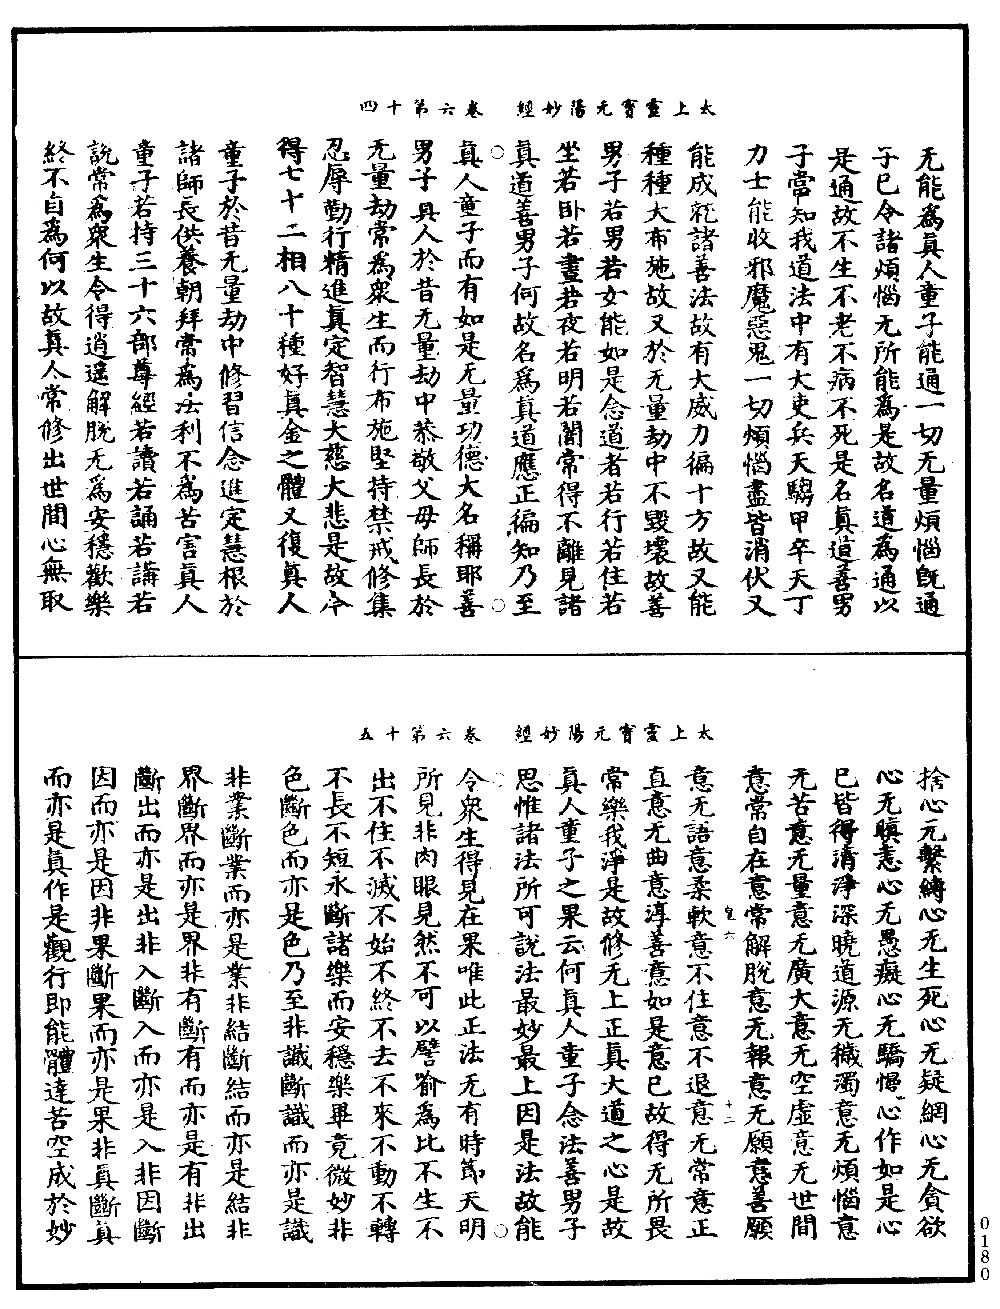 太上靈寶元陽妙經　卷六第十四
无能爲真人童子能通一切无量煩惱旣通
子已令諸煩惱无所能爲是故名道爲通以
是通故不生不老不病不死是名真道善男
子當知我道法中有大吏兵天騶甲卒天丁
力士能收邪魔惡鬼一切煩惱盡皆消伏又
能成就諸善法故有大威力徧十方故又能
種種大布施故又於无量劫中不毀壞故善
男子若男若女能如是念道者若行若住若
坐若卧若晝若夜若明若闇常得不離見諸
真道善男子何故名爲真道應正徧知乃至
○真人童子而有如是无量功德大名稱耶善○
男子真人於昔无量劫中恭敬父母師長於
无量劫常爲衆生而行布施堅持禁戒修集
忍辱勤行精進真定智慧大慈大悲是故今
得七十二相八十種好真金之體又復真人
童子於昔无量劫中修習信念進定慧根於
諸師長供養朝拜常爲法利不爲苦害真人
童子若持三十六部尊經若讀若誦若講若
說常爲衆生令得逍遥解脫无爲安穩歡樂
終不自爲何以故真人常修出世間心無取
太上靈寶元陽妙經　卷六第十五
捨心无繫縛心无生死心无疑網心无貪欲
心无瞋恚心无愚癡心无驕慢心作如是心
已皆得清淨深曉道源无穢濁意无煩惱意
无苦意无量意无廣大意无空虛意无世間
意常自在意常解脫意无報意无願意善願
皇六　十二
意无語意柔軟意不住意不退意无常意正
直意无曲意淳善意如是意已故得无所畏
常樂我淨是故修无上正真大道之心是故
真人童子之果云何真人童子念法善男子
○思惟諸法所可說法最妙最上因是法故能○
令衆生得見在果唯此正法无有時節天明
所見非肉眼見然不可以譬喻爲比不生不
出不住不滅不始不終不去不來不動不轉
不長不短永斷諸樂而安穩樂畢竟微妙非
色斷色而亦是色乃至非識斷識而亦是識
非業斷業而亦是業非結斷結而亦是結非
界斷界而亦是界非有斷有而亦是有非出
斷出而亦是出非入斷入而亦是入非因斷
因而亦是因非果斷果而亦是果非真斷真
而亦是真作是觀行即能體達苦空成於妙
0180